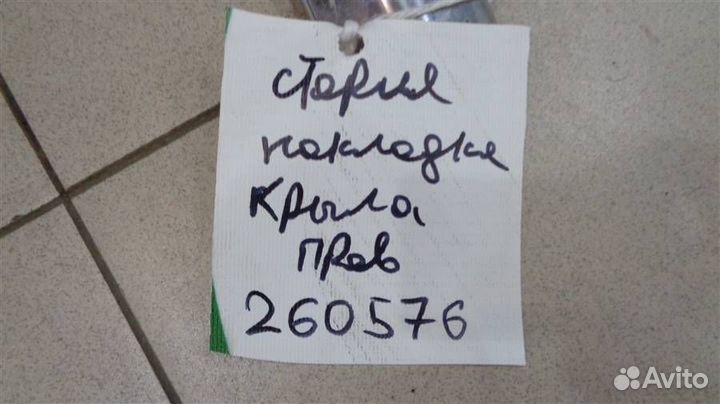 стария
накладка
крыла
прав
260576
Avito